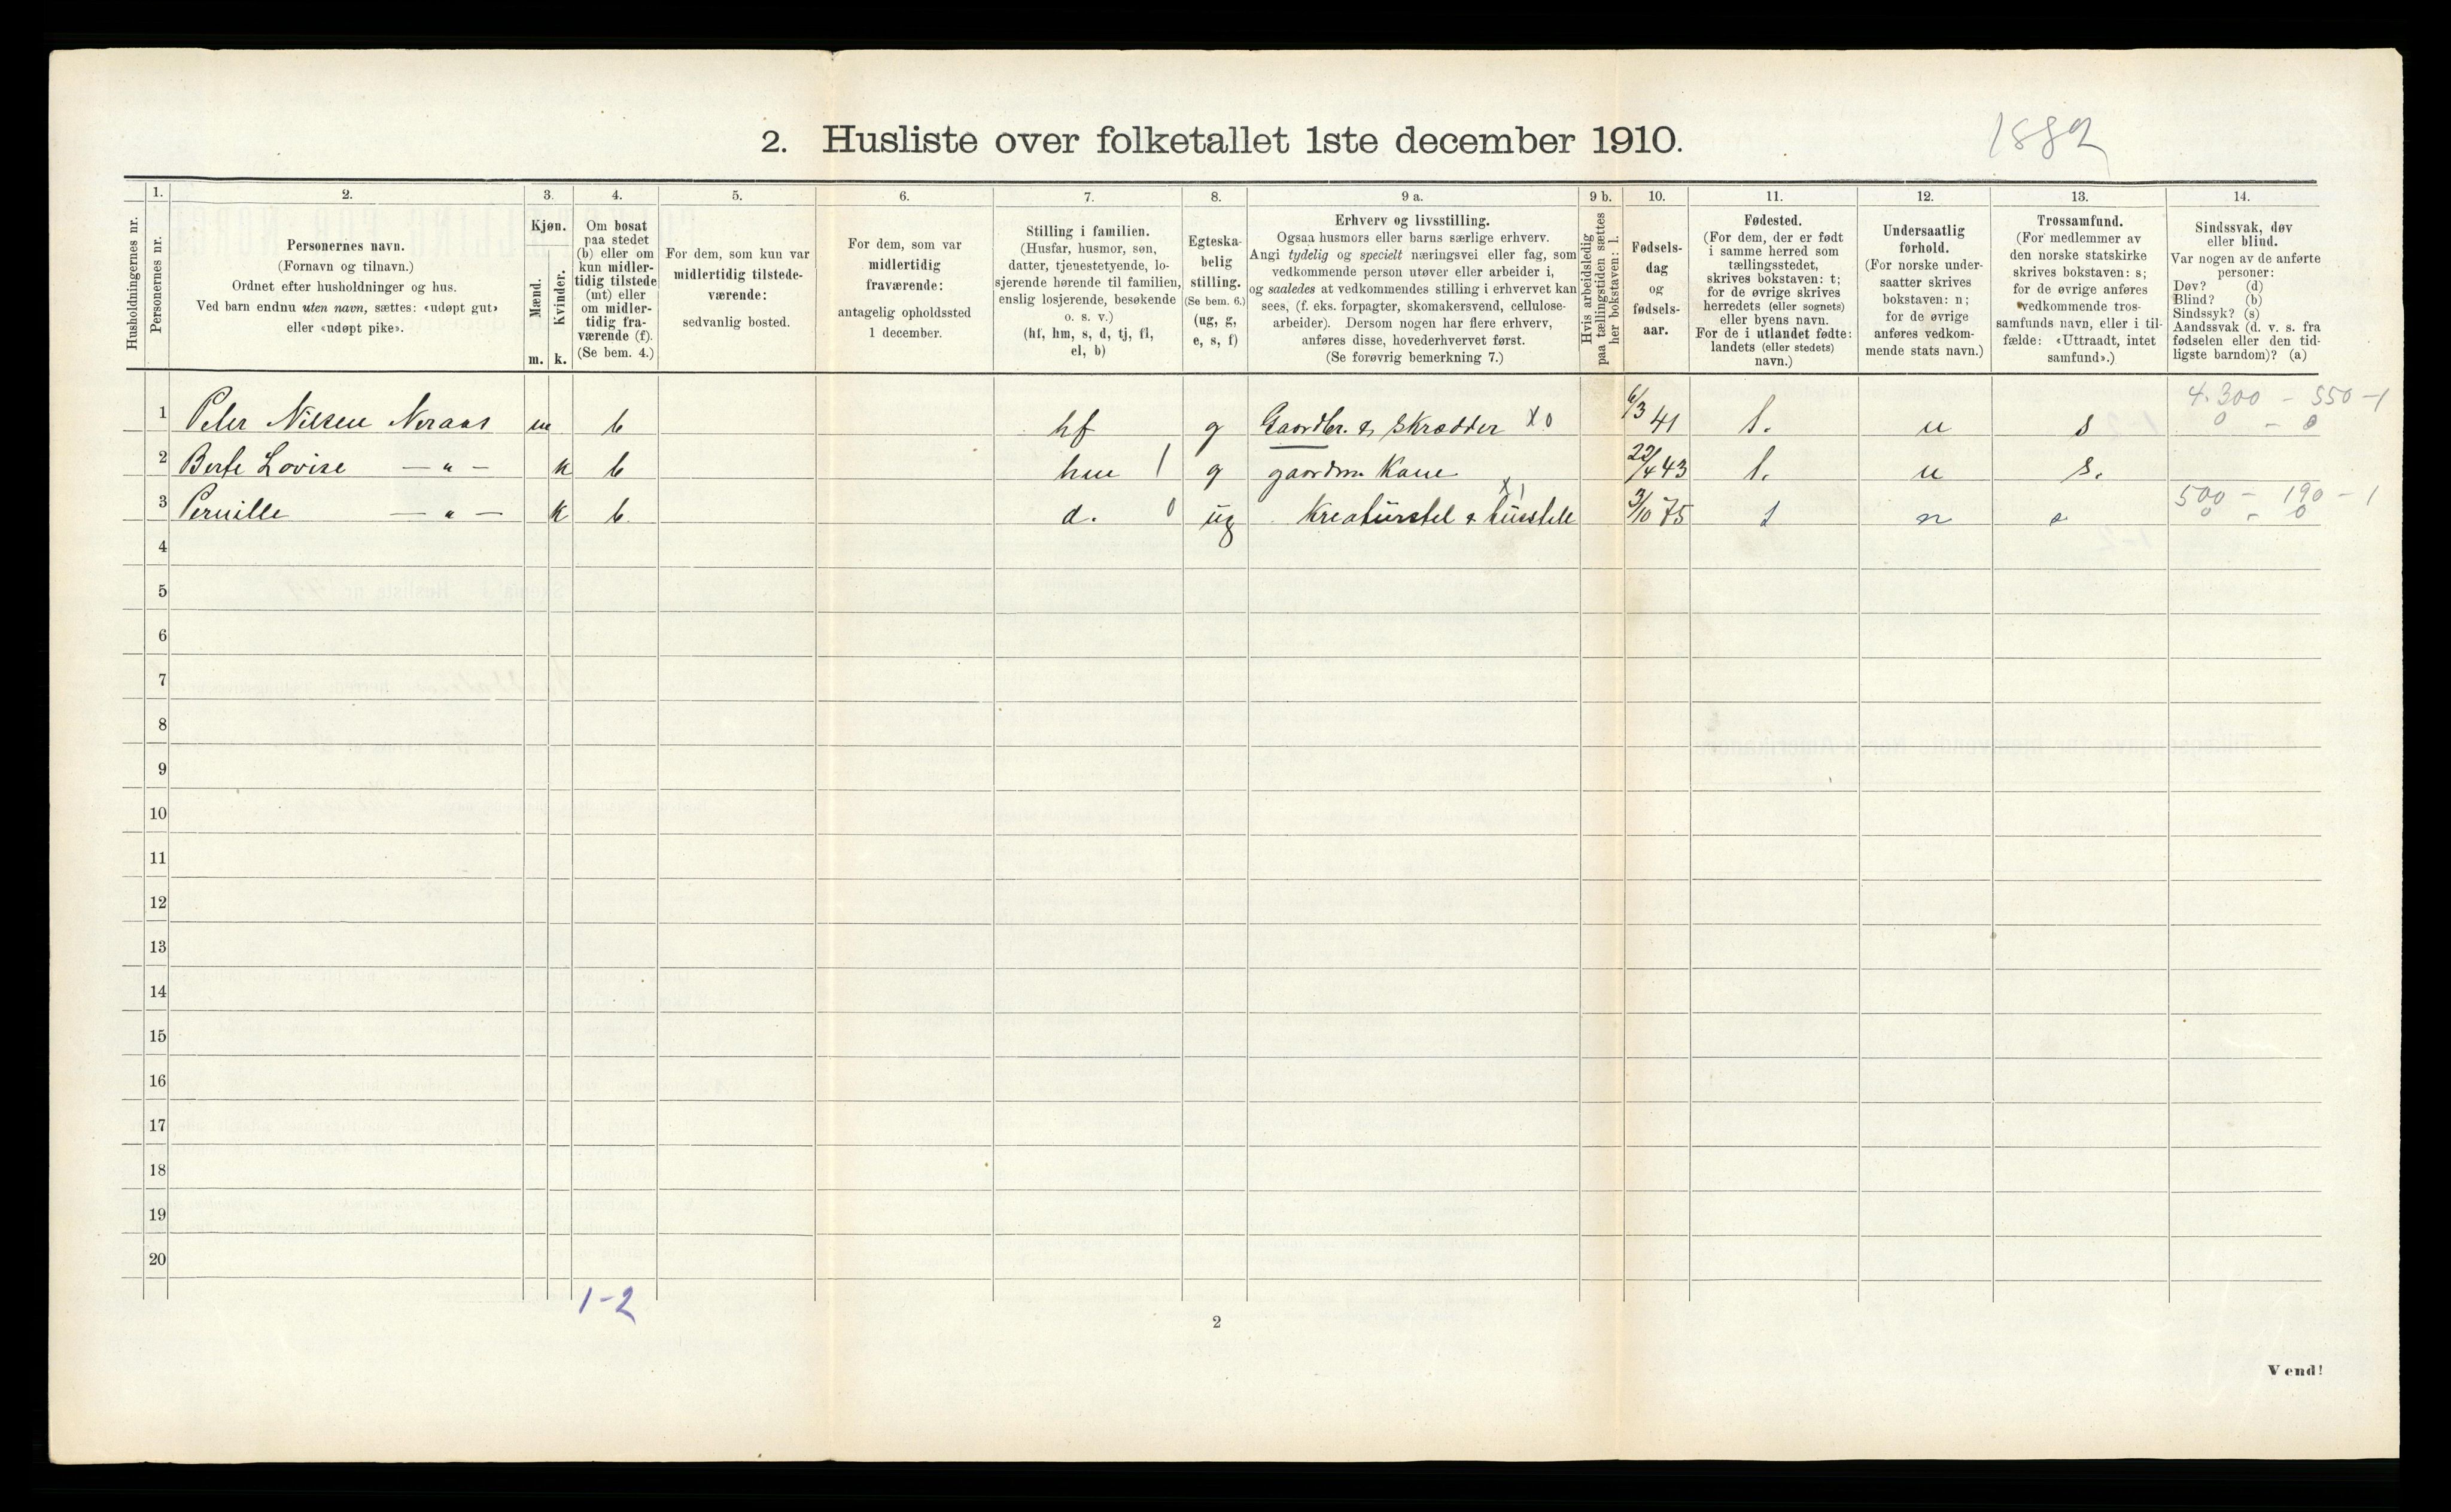 1882
2. Husliste over folketallet 1ste december 1910.
Husholdningernes nr.
1.
Personernes nr.
2.
Personernes navn.
(Fornavn og tilnavn.)
Ordnet efter husholdninger og hus.
Ved barn endnu uten navn, sættes: «udøpt gut»
eller «udøpt pike».
3.
Kjøn.
Mænd.
Kvinder.
m. k.
4.
Om bosat
paa stedet
(b) eller om
kun midler-
tidig tilstede
(mt) eller
om midler-
tidig fra-
værende (f).
(Se bem. 4.)
5.
For dem, som kun var
midlertidig tilstede-
værende:
sedvanlig bosted.
6.
For dem, som var
midlertidig
fraværende:
antagelig opholdssted
1 december.
7.
Stilling i familien.
(Husfar, husmor, søn,
datter, tjenestetyende, lo-
sjerende hørende til familien,
enslig losjerende, besøkende
o. s. v.)
(hf, hm, s, d, tj, fl,
el, b)
8.
Egteska-
belig
stilling.
(Se bem. 6.)
(ug, g,
e, s, f)
9 a.
Erhverv og livsstilling.
Ogsaa husmors eller barns særlige erhverv.
Angi tydelig og specielt næringsvei eller fag, som
vedkommende person utøver eller arbeider i,
og saaledes at vedkommendes stilling i erhvervet kan
sees, (f. eks. forpagter, skomakersvend, cellulose-
arbeider). Dersom nogen har flere erhverv,
anføres disse, hovederhvervet først.
(Se forøvrig bemerkning 7.)
9 b.
Hvis arbeidsledig
paa tællingstiden sættes
her bokstaven: l.
10.
Fødsels-
dag
og
fødsels-
aar.
11.
Fødested.
(For dem, der er født
i samme herred som
tællingsstedet,
skrives bokstaven: t;
for de øvrige skrives
herredets (eller sognets)
eller byens navn.
For de i utlandet fødte:
landets (eller stedets)
navn.)
12.
Undersaatlig
forhold.
(For norske under-
saatter skrives
bokstaven: n;
for de øvrige
anføres vedkom-
mende stats navn.)
13.
Trossamfund.
(For medlemmer av
den norske statskirke
skrives bokstaven: s;
for de øvrige anføres
vedkommende tros-
samfunds navn, eller i til-
fælde: «Uttraadt, intet
samfund».)
14.
Sindssvak, døv
eller blind.
Var nogen av de anførte
personer:
Døv? (d)
Blind? (b)
Sindssyk? (s)
Aandssvak (d. v. s. fra
fødselen eller den tid-
ligste barndom)? (a)
4.300 - 550 - 1
0 - 0
1 Peter Nilsen Neraas m b hf g Gaardbr. & Skrædder X 0 6/3 41 t. n s
2 Berte Lovise — " — k b hm 1 g gaardm. Kone 22/4 43 t. n s.
500 - 190 - 1
0 - 0
3 Pernille — " — k b. d. 0 ug Kreaturstel & husstell X 1 3/10 75 t n s
4
5
6
7
8
9
10
11
12
13
14
15
16
17
18
19
20
1-2
2
Vend!